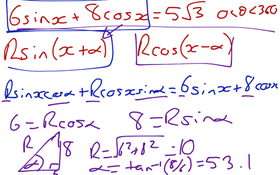 6sinx + 8cosx = 5√3 0<8<360
Rsin(x+α) Rcos(x-α)
Rsinxcosα + Rcosxsinα = 6sinx + 8cosx
6 = Rcosα 8 = Rsinα
R 8 R = √6²+8² = 10
α 6 α = tan⁻¹(8/6) = 53.1